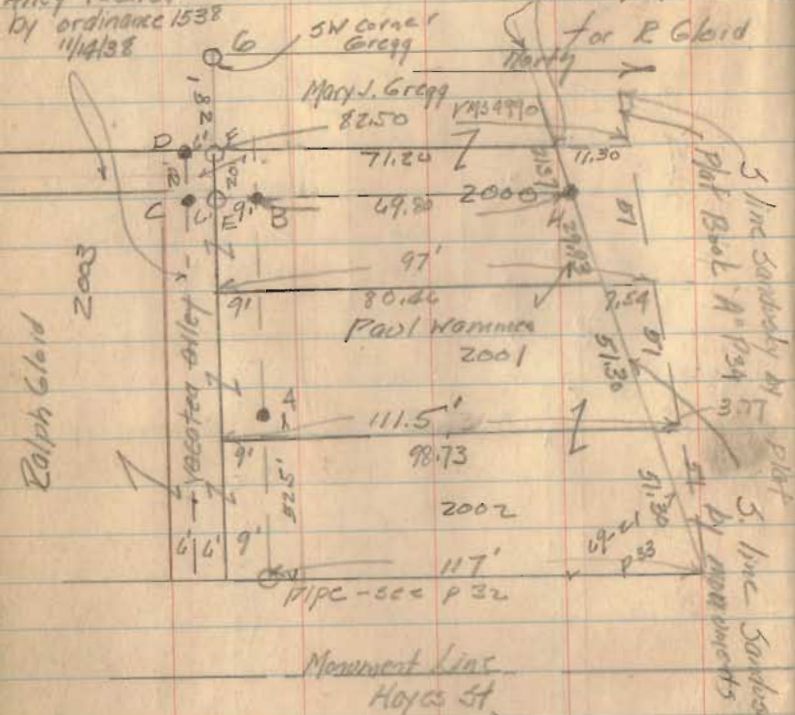 by ordinance 1538
11/14/38
G
SW Corner
Gregg
for R Gloid
North
Mary J. Gregg
82.50
VMS4990
1.82
D
6'
F
71.20
11.30
20'
C
E
9'
B
49.80
2000
H
51
2003
97'
9'
80.46
7.54
Paul Wammes
2001
51.30
51
4
111.5'
3.77
9'
98.73
Ralph Gloid
vacated alley
82.5'
2002
51.30
51
6' 6'
9'
117'
P 33
pipe - see P 32
Monument Line
Hayes St.
S. line Sandusky by plat
Plat Book "A" P34
S. line Sandus
by monuments